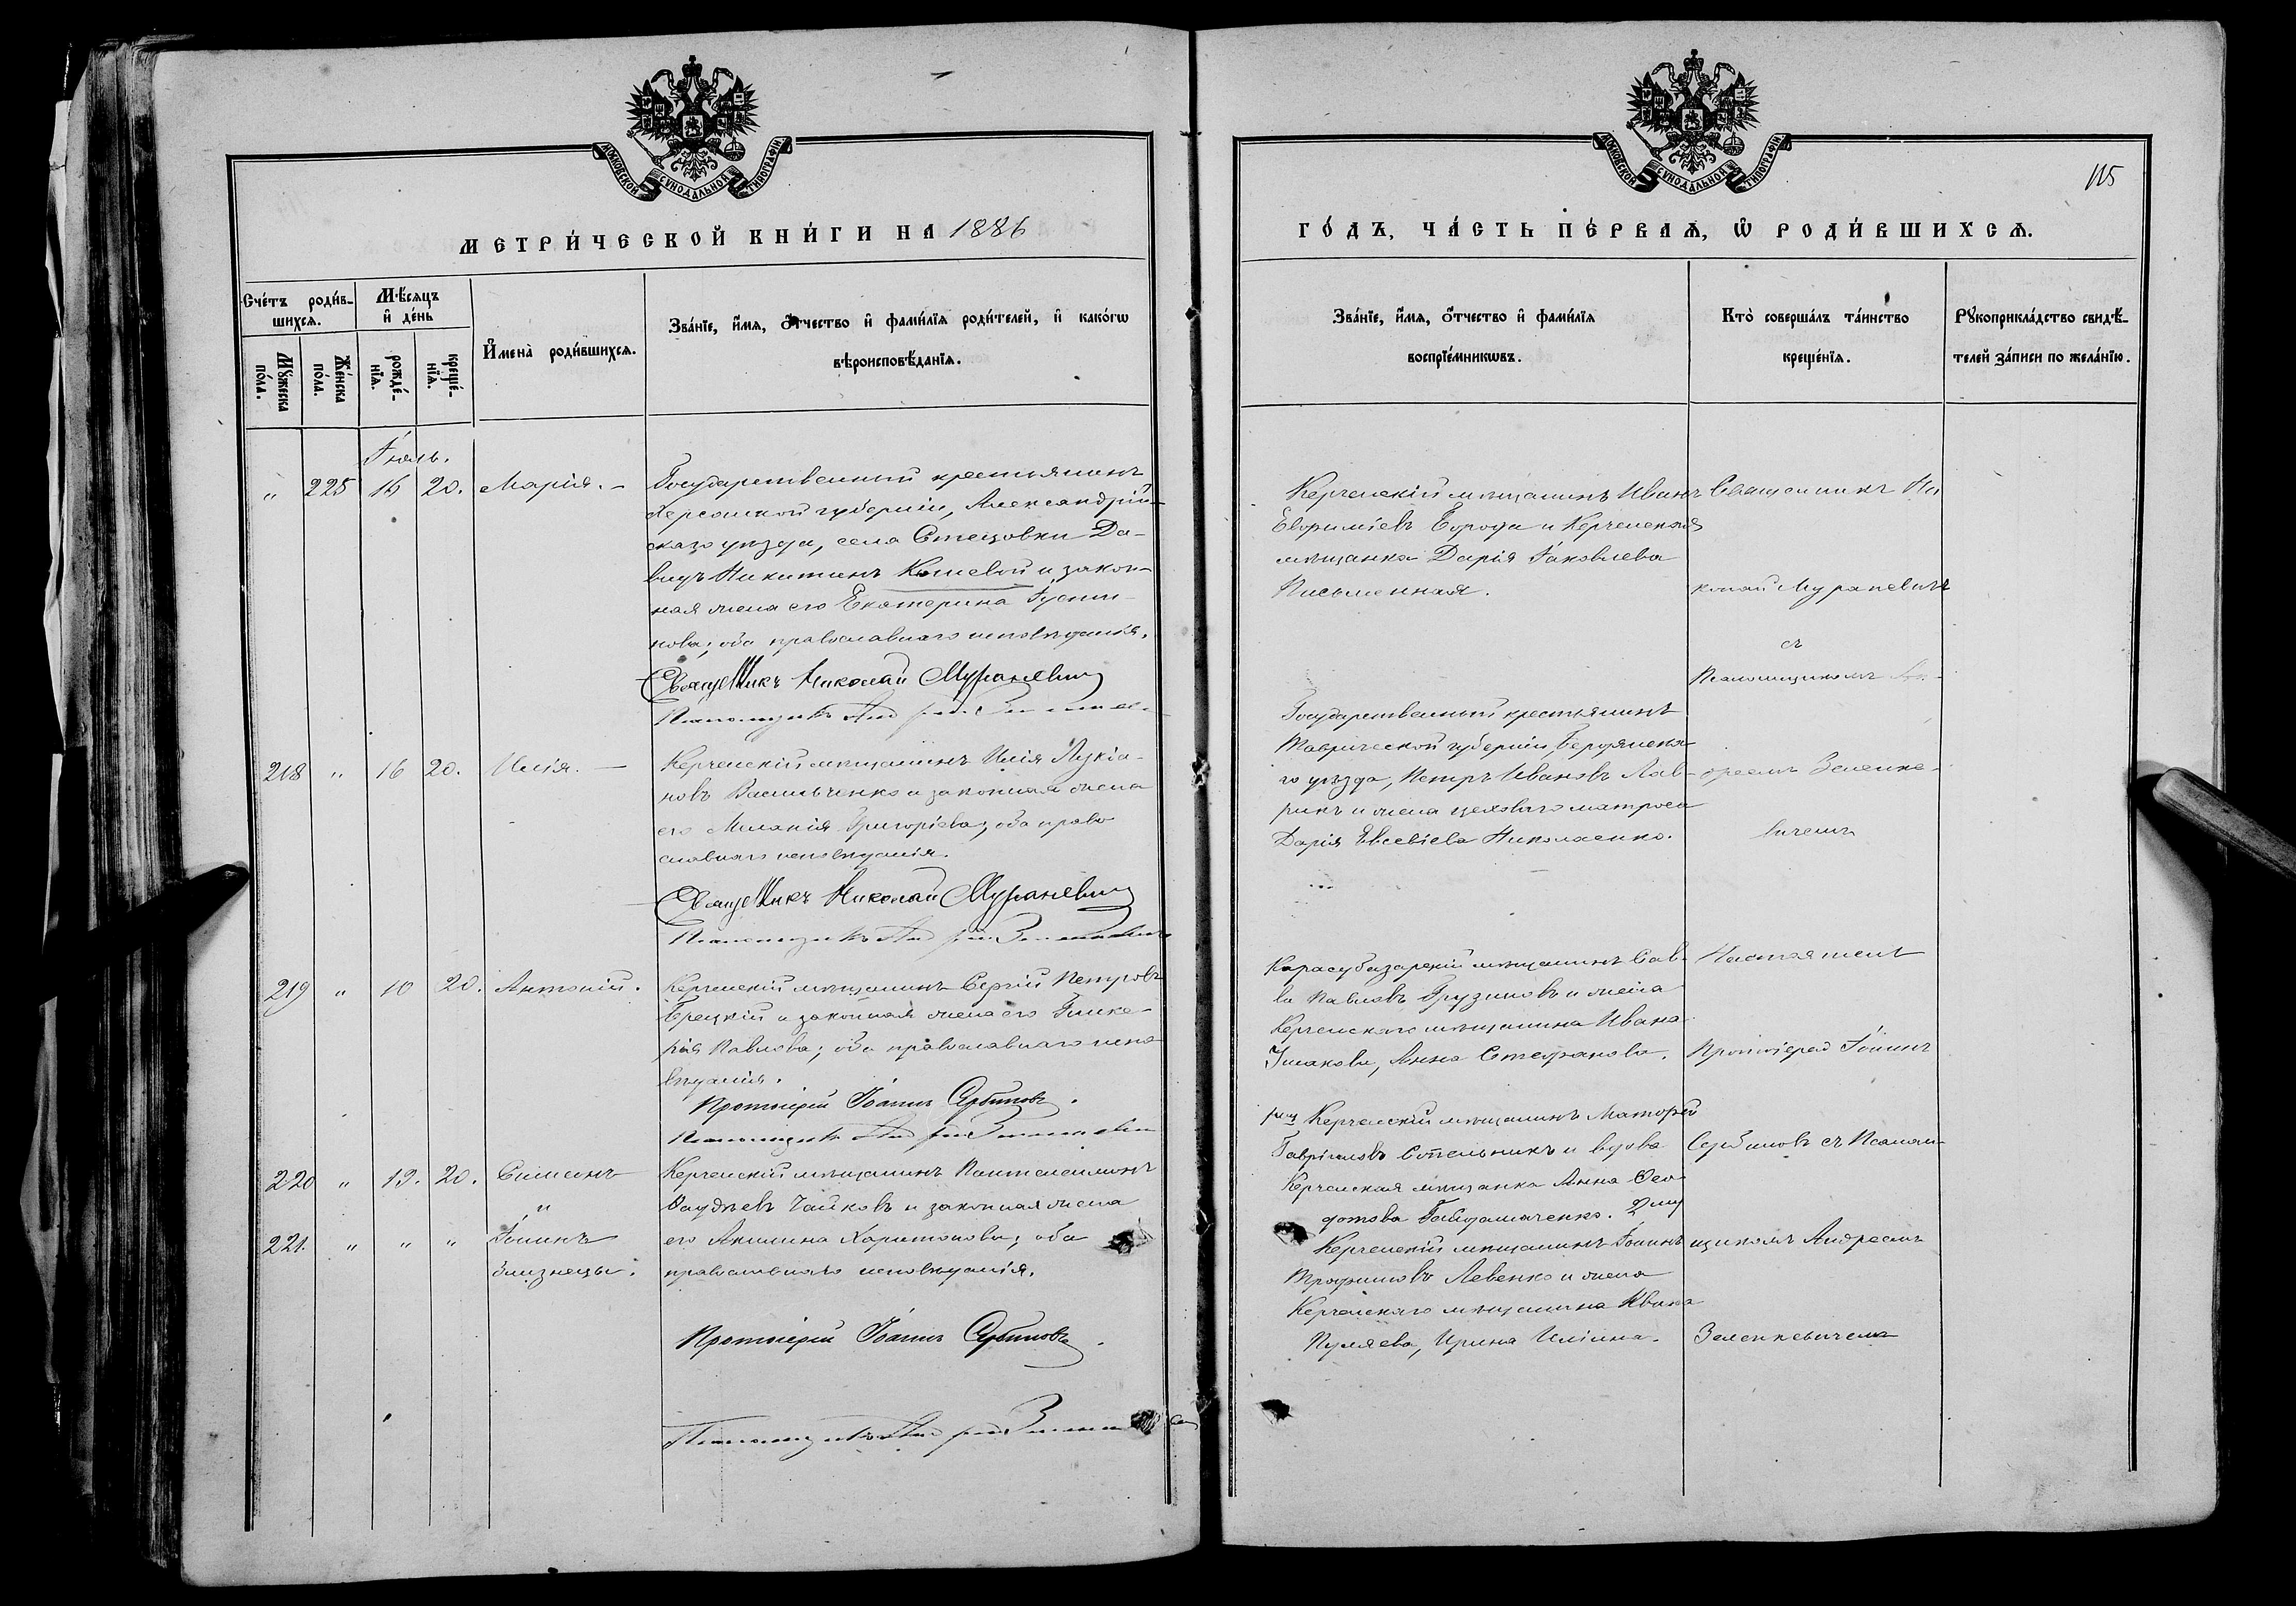 МОСКОВСКОЙ СУНОДАЛЬНОЙ ТИПОГРАФІИ
МЕТРИ́ЧЕСКОЙ КНИ́ГИ НА 1886
Сче́тъ роди́в-
шихсѧ.
Мꙋжеска по́ла.
Же́нска по́ла.
Мѣ́сѧцъ
и҆ де́нь
рожде́-
нїѧ.
креще́-
нїѧ.
И҆мена̀ роди́вшихсѧ.
Зва́нїе, и҆́мѧ, ѻ҆́тчество и҆ фамі́лїѧ роди́телей, и҆ како́гѡ
вѣроисповѣ́данїѧ.
Іюль.
" 225 16 20. Марія. —
Государственный крестьянинъ
Херсонской губерніи, Александрій-
скаго уѣзда, села Стецовки Да-
видъ Никитинъ Кошевой и закон-
ная жена его Екатерина Густи-
нова; оба православнаго исповѣданія.
Священникъ Николай Мураневич
Псаломщикъ
218 " 16 20. Илія. —
Керченскій мѣщанинъ Илія Лукіа-
новъ Васильченко и законная жена
его Меланія Григоріева; оба право
славнаго исповѣданія.
Священникъ Николай Мураневич
Псаломщикъ
219 " 10 20. Антоній.
Керченскій мѣщанинъ Сергій Петровъ
Грецкій и законная жена его Глике-
рія Павлова; оба православнаго испо
вѣданія.
Протоіерей Іоаннъ Сербиновъ.
Псаломщикъ
220 " 19. 20. Симеонъ
Керченскій мѣщанинъ Пантелеимонъ
Фаддѣевъ Чайковъ и законная жена
"
221. " " " Іоаннъ
его Акилина Харитонова; оба
близнецы.
православнаго исповѣданія.
Протоіерей Іоаннъ Сербиновъ.
Псаломщикъ
МОСКОВСКОЙ СУНОДАЛЬНОЙ ТИПОГРАФІИ
115
ГО́ДЪ, ЧА́СТЬ ПЕ́РВАѦ, Ѡ҆ РОДИ́ВШИХСѦ.
Зва́нїе, и҆́мѧ, ѻ҆́тчество и҆ фамі́лїѧ
воспрїе́мникѡвъ.
Кто̀ соверша́лъ та́инство
креще́нїѧ.
Рꙋкоприкла́дство свидѣ́-
телей за́писи по жела́нїю.
Керченскій мѣщанинъ Иванъ
Евфиміевъ и Керченская
мѣщанка Дарія Іаковлева
Письменная.
Священникъ Ни
колай Мураневичъ
съ
Псаломщикомъ Ан-
Государственный крестьянинъ
Таврической губерніи, Бердянска
го уѣзда, Петръ Ивановъ Лав-
рикъ и жена целоваго матроса
Дарія Евсевіева Николаенко.
дреемъ Зеленке-
вичемъ
Карасубазарскій мѣщанинъ Сав-
ва Павловъ Грузиновъ и жена
Керченскаго мѣщанина Ивана
Анна Стефанова.
Настоятель
Протоіерей Іоаннъ
Керченскій мѣщанинъ Матфей
Гавріиловъ и вдова
Керченская мѣщанка Анна Фео
дотова Гайдамаченко. 2му
Керченскій мѣщанинъ Іоаннъ
Трофимовъ Левенко и жена
Керченскаго мѣщанина Ивана
Пуляева, Ирина Иліина.
Сербиновъ съ Псалом-
щикомъ Андреемъ
Зеленкевичемъ